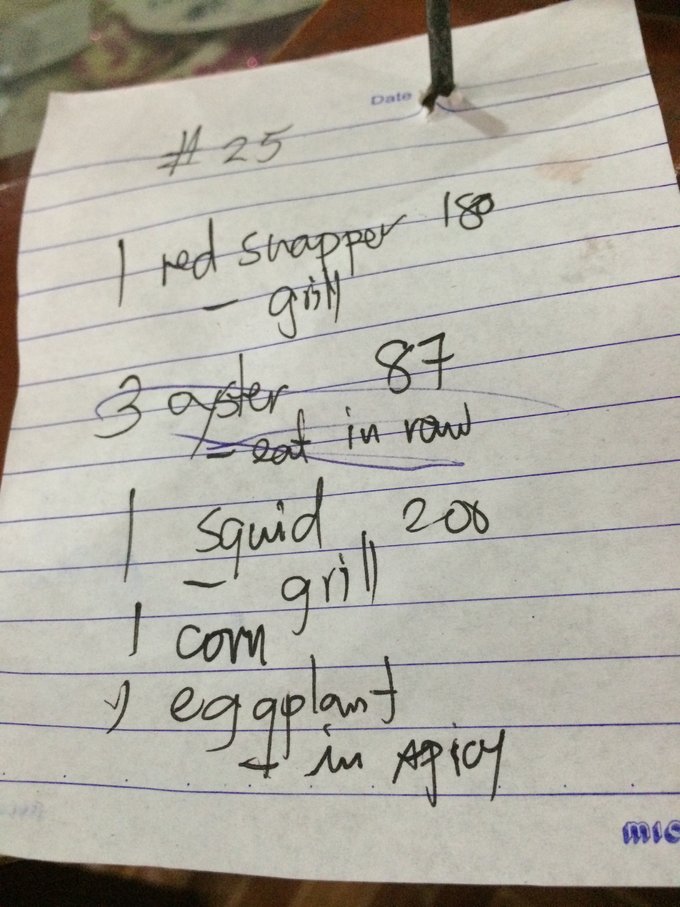 Date
# 25
1 red snapper 180
- grill
3 oyster 87
= eat in raw
1 squid 200
- grill
1 corn
1 eggplant
+ in spicy